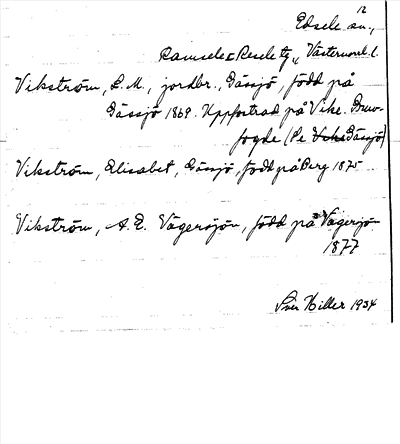 12
Edsele sn.,
Ramsele o Resele tg., Västernorrl. l.
Vikström, L. M., jordbr., Gässjö, född på
Gässjö 1869. Uppfostrad på Vike.
fogde (Pe Gässjö)
Vikström, Elisabet, Gässjö, född på Berg 1875
Vikström, A. E. Vägersjön, född på Vägersjö
1877
Hiller 1934